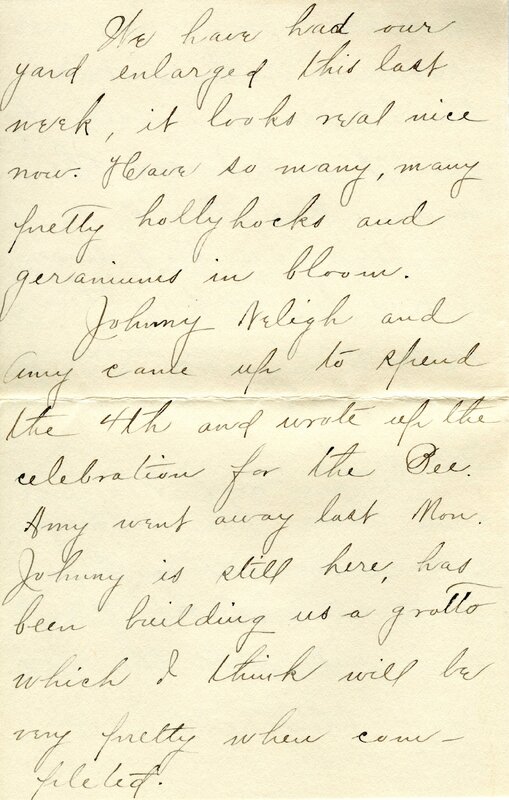 We have had our
yard enlarged this last
week, it looks real nice
now. Have so many, many
pretty hollyhocks and
geraniums in bloom.
Johnny Neligh and
Amy came up to spend
the 4th and wrote up the
celebration for the Bee.
Amy went away last Mon.
Johnny is still here, has
been building us a grotto
which I think will be
very pretty when com-
pleted.